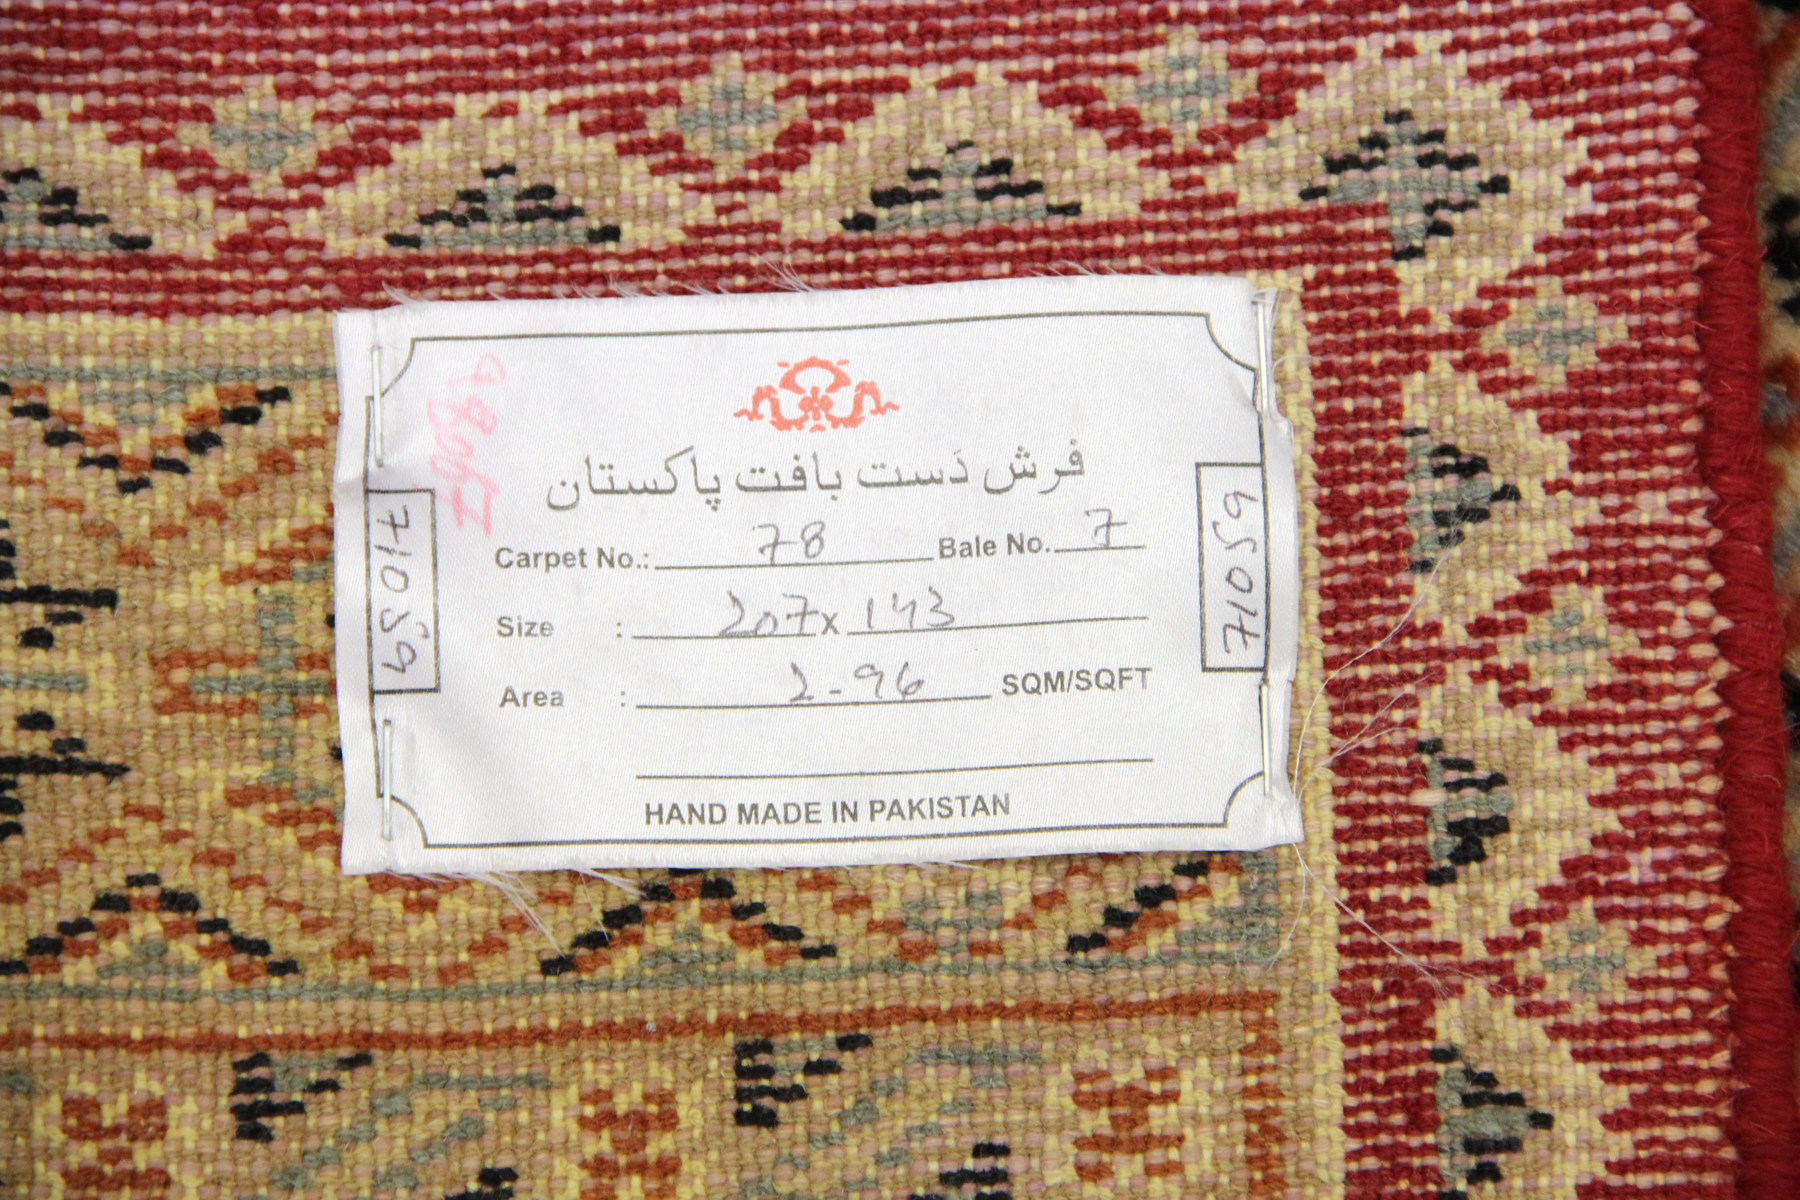 فرش دَست بافت پاکستان
Carpet No.: 78 Bale No. 7
Size : 207 x 143
Area : 2-96 SQM/SQFT
HAND MADE IN PAKISTAN
71059
71059